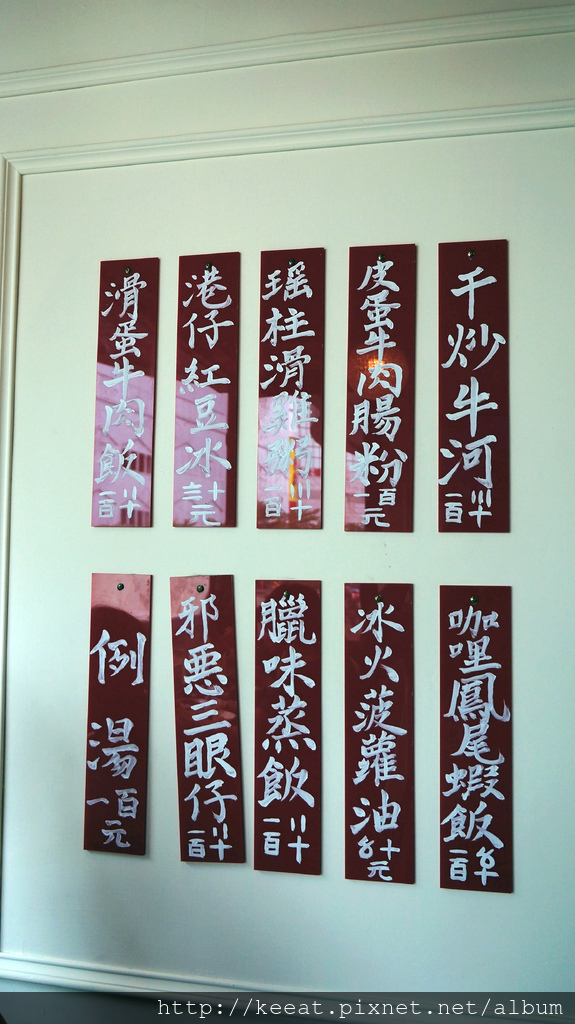 干炒牛河 一百〣十
皮蛋牛肉腸粉 一百元
瑶柱滑雞粥 一百〢十
港仔紅豆冰 〨十元
滑蛋牛肉飯 一百〢十
咖哩鳳尾蝦飯 一百〥十
冰火菠蘿油 〥十元
臘味蒸飯 一百〢十
邪惡三眼仔 一百〢十
例湯 一百元
http://keeat.pixnet.net/album